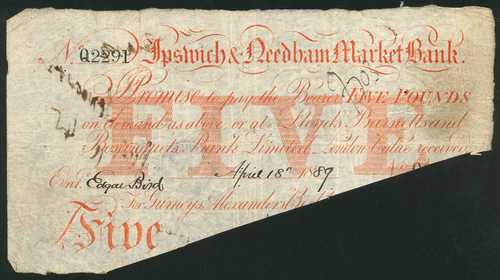 No. Q2291 Ipswich & Needham Market Bank.
I Promise to pay the Bearer FIVE POUNDS
on demand as above or at Lloyds, Barnetts and
Bosanquets Bank Limited London value received
FIVE
Ent. Edgar Bird April 18th 1889 No. Q
For Gurneys, Alexanders
Five